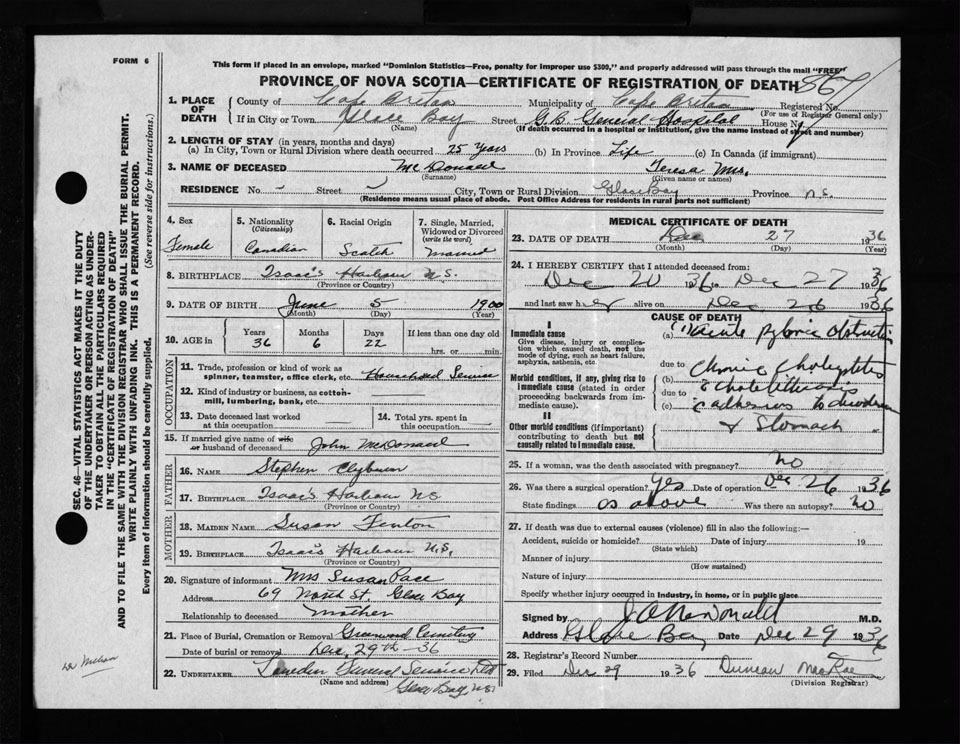 FORM 6
This form if placed in an envelope, marked "Dominion Statistics—Free, penalty for improper use $300," and properly addressed will pass through the mail "FREE"
PROVINCE OF NOVA SCOTIA—CERTIFICATE OF REGISTRATION OF DEATH
1. PLACE OF DEATH
County of Cape Breton Municipality of Cape Breton Registered No.
(For use of Registrar General only)
If in City or Town Glace Bay Street G.B. General Hospital House No.
(Name) (If death occurred in a hospital or institution, give the name instead of street and number)
2. LENGTH OF STAY (in years, months and days)
(a) In City, Town or Rural Division where death occurred 25 years (b) In Province Life (c) In Canada (if immigrant)
3. NAME OF DECEASED McDonald Teresa Mrs.
(Surname) (Given name or names)
RESIDENCE No. - Street City, Town or Rural Division Glace Bay Province N.S.
(Residence means usual place of abode. Post Office Address for residents in rural parts not sufficient)
4. Sex Female
5. Nationality (Citizenship) Canadian
6. Racial Origin Scotch
7. Single, Married, Widowed or Divorced (write the word) Married
8. BIRTHPLACE Isaac's Harbour N.S.
(Province or Country)
9. DATE OF BIRTH June 5 1900
(Month) (Day) (Year)
10. AGE in Years Months Days If less than one day old
36 6 22 hrs. or min.
OCCUPATION
11. Trade, profession or kind of work as spinner, teamster, office clerk, etc. Household Service
12. Kind of industry or business, as cotton-mill, lumbering, bank, etc.
13. Date deceased last worked at this occupation
14. Total yrs. spent in this occupation
15. If married give name of wife or husband of deceased John McDonald
FATHER
16. NAME Stephen Clyburn
17. BIRTHPLACE Isaac's Harbour N.S.
(Province or Country)
MOTHER
18. MAIDEN NAME Susan Fenton
19. BIRTHPLACE Isaac's Harbour N.S.
(Province or Country)
20. Signature of informant Mrs Susan Pace
Address 69 St. Glace Bay
Relationship to deceased Mother
21. Place of Burial, Cremation or Removal Greenwood Cemetery
Date of burial or removal Dec. 29th - 36
22. UNDERTAKER Funeral Service Ltd
(Name and address) Glace Bay, N.S.
MEDICAL CERTIFICATE OF DEATH
23. DATE OF DEATH Dec 27 1936
(Month) (Day) (Year)
24. I HEREBY CERTIFY that I attended deceased from:
Dec 20 1936 to Dec 27 1936
and last saw her alive on Dec 26 1936
CAUSE OF DEATH
I
Immediate cause
Give disease, injury or complication which caused death, not the mode of dying, such as heart failure, asphyxia, asthenia, etc.
(a) acute pyloric obstruction
due to Chronic Cholecystitis
Morbid conditions, if any, giving rise to immediate cause (stated in order proceeding backwards from immediate cause).
(b)
due to & cholelithiasis
(c) adhesions to duodenum
& stomach
II
Other morbid conditions (if important) contributing to death but not causally related to immediate cause.
25. If a woman, was the death associated with pregnancy? No
26. Was there a surgical operation? Yes Date of operation Dec 26 1936
State findings as above Was there an autopsy? No
27. If death was due to external causes (violence) fill in also the following:—
Accident, suicide or homicide? Date of injury 19
(State which)
Manner of injury
(How sustained)
Nature of injury
Specify whether injury occurred in industry, in home, or in public place
Signed by McDonald M.D.
Address Glace Bay Date Dec 29 1936
28. Registrar's Record Number
29. Filed Dec 29 1936 Duncan MacRae
(Division Registrar)
SEC. 46—VITAL STATISTICS ACT MAKES IT THE DUTY
OF THE UNDERTAKER OR PERSON ACTING AS UNDER-
TAKER TO OBTAIN ALL THE PARTICULARS REQUIRED
IN THE "CERTIFICATE OF REGISTRATION OF DEATH"
AND TO FILE THE SAME WITH THE DIVISION REGISTRAR WHO SHALL ISSUE THE BURIAL PERMIT.
WRITE PLAINLY WITH UNFADING INK. THIS IS A PERMANENT RECORD.
Every item of Information should be carefully supplied. (See reverse side for instructions.)